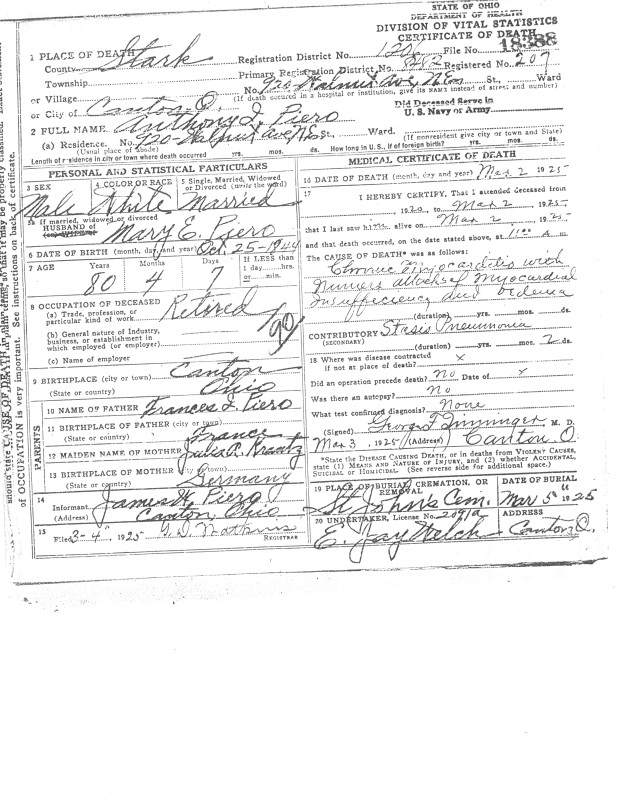 STATE OF OHIO
DEPARTMENT OF HEALTH
DIVISION OF VITAL STATISTICS
CERTIFICATE OF DEATH
1 PLACE OF DEATH
County Stark Registration District No. 1206 File No. 18388
Township Primary Registration District No. 8482 Registered No. 207
or Village No. 920 Walnut Ave, N.E. St., Ward
(If death occurred in a hospital or institution, give its NAME instead of street and number)
or City of Canton-O. Did Deceased Serve in
U. S. Navy or Army
2 FULL NAME Anthony J. Piero
(a) Residence. No. 920-Walnut Ave N.E. St., Ward.
(Usual place of abode) (If nonresident give city or town and State)
Length of residence in city or town where death occurred yrs. mos. ds. How long in U. S., if of foreign birth? yrs. mos. ds.
PERSONAL AND STATISTICAL PARTICULARS
3 SEX 4 COLOR OR RACE 5 Single, Married, Widowed
or Divorced (write the word)
Male White Married
5a If married, widowed or divorced
HUSBAND of
(or) WIFE of Mary E. Piero
6 DATE OF BIRTH (month, day, and year) Oct. 25-1844
7 AGE Years Months Days If LESS than
1 day, hrs.
or min.
80 4 7
8 OCCUPATION OF DECEASED
(a) Trade, profession, or
particular kind of work Retired
(b) General nature of Industry,
business, or establishment in
which employed (or employer)
(c) Name of employer
90
9 BIRTHPLACE (city or town) Canton
(State or country) Ohio
PARENTS
10 NAME OF FATHER Frances J. Piero
11 BIRTHPLACE OF FATHER (city or town)
(State or country) France
12 MAIDEN NAME OF MOTHER Julia P. Krantz
13 BIRTHPLACE OF MOTHER (city or town)
(State or country) Germany
14
Informant James W. Piero
(Address) Canton, Ohio
15
Filed 3-4, 1925 Watkins
REGISTRAR
MEDICAL CERTIFICATE OF DEATH
16 DATE OF DEATH (month, day, and year) Mar 2 1925
17
I HEREBY CERTIFY, That I attended deceased from
1920, to Mar 2, 1925
that I last saw him alive on Mar 2, 1925
and that death occurred, on the date stated above, at 11:00 A m.
The CAUSE OF DEATH* was as follows:
Chronic Myocarditis with
attacks of Myocardial
Insufficiency and Oedema
(duration) yrs. mos. ds.
CONTRIBUTORY Stasis Pneumonia
(SECONDARY) (duration) yrs. mos. 2 ds.
18 Where was disease contracted
if not at place of death? x
Did an operation precede death? No Date of x
Was there an autopsy? No
What test confirmed diagnosis? None
(Signed) George M. D.
Mar 3, 1925 (Address) Canton O.
*State the DISEASE CAUSING DEATH, or in deaths from VIOLENT CAUSES,
state (1) MEANS AND NATURE OF INJURY, and (2) whether ACCIDENTAL,
SUICIDAL or HOMICIDAL. (See reverse side for additional space.)
19 PLACE OF BURIAL, CREMATION, OR
REMOVAL DATE OF BURIAL
St John's Cem. Mar 5 1925
20 UNDERTAKER, License No. 2091a ADDRESS
E. Jay Welch Canton O.
of OCCUPATION is very important. See instructions on back of certificate.